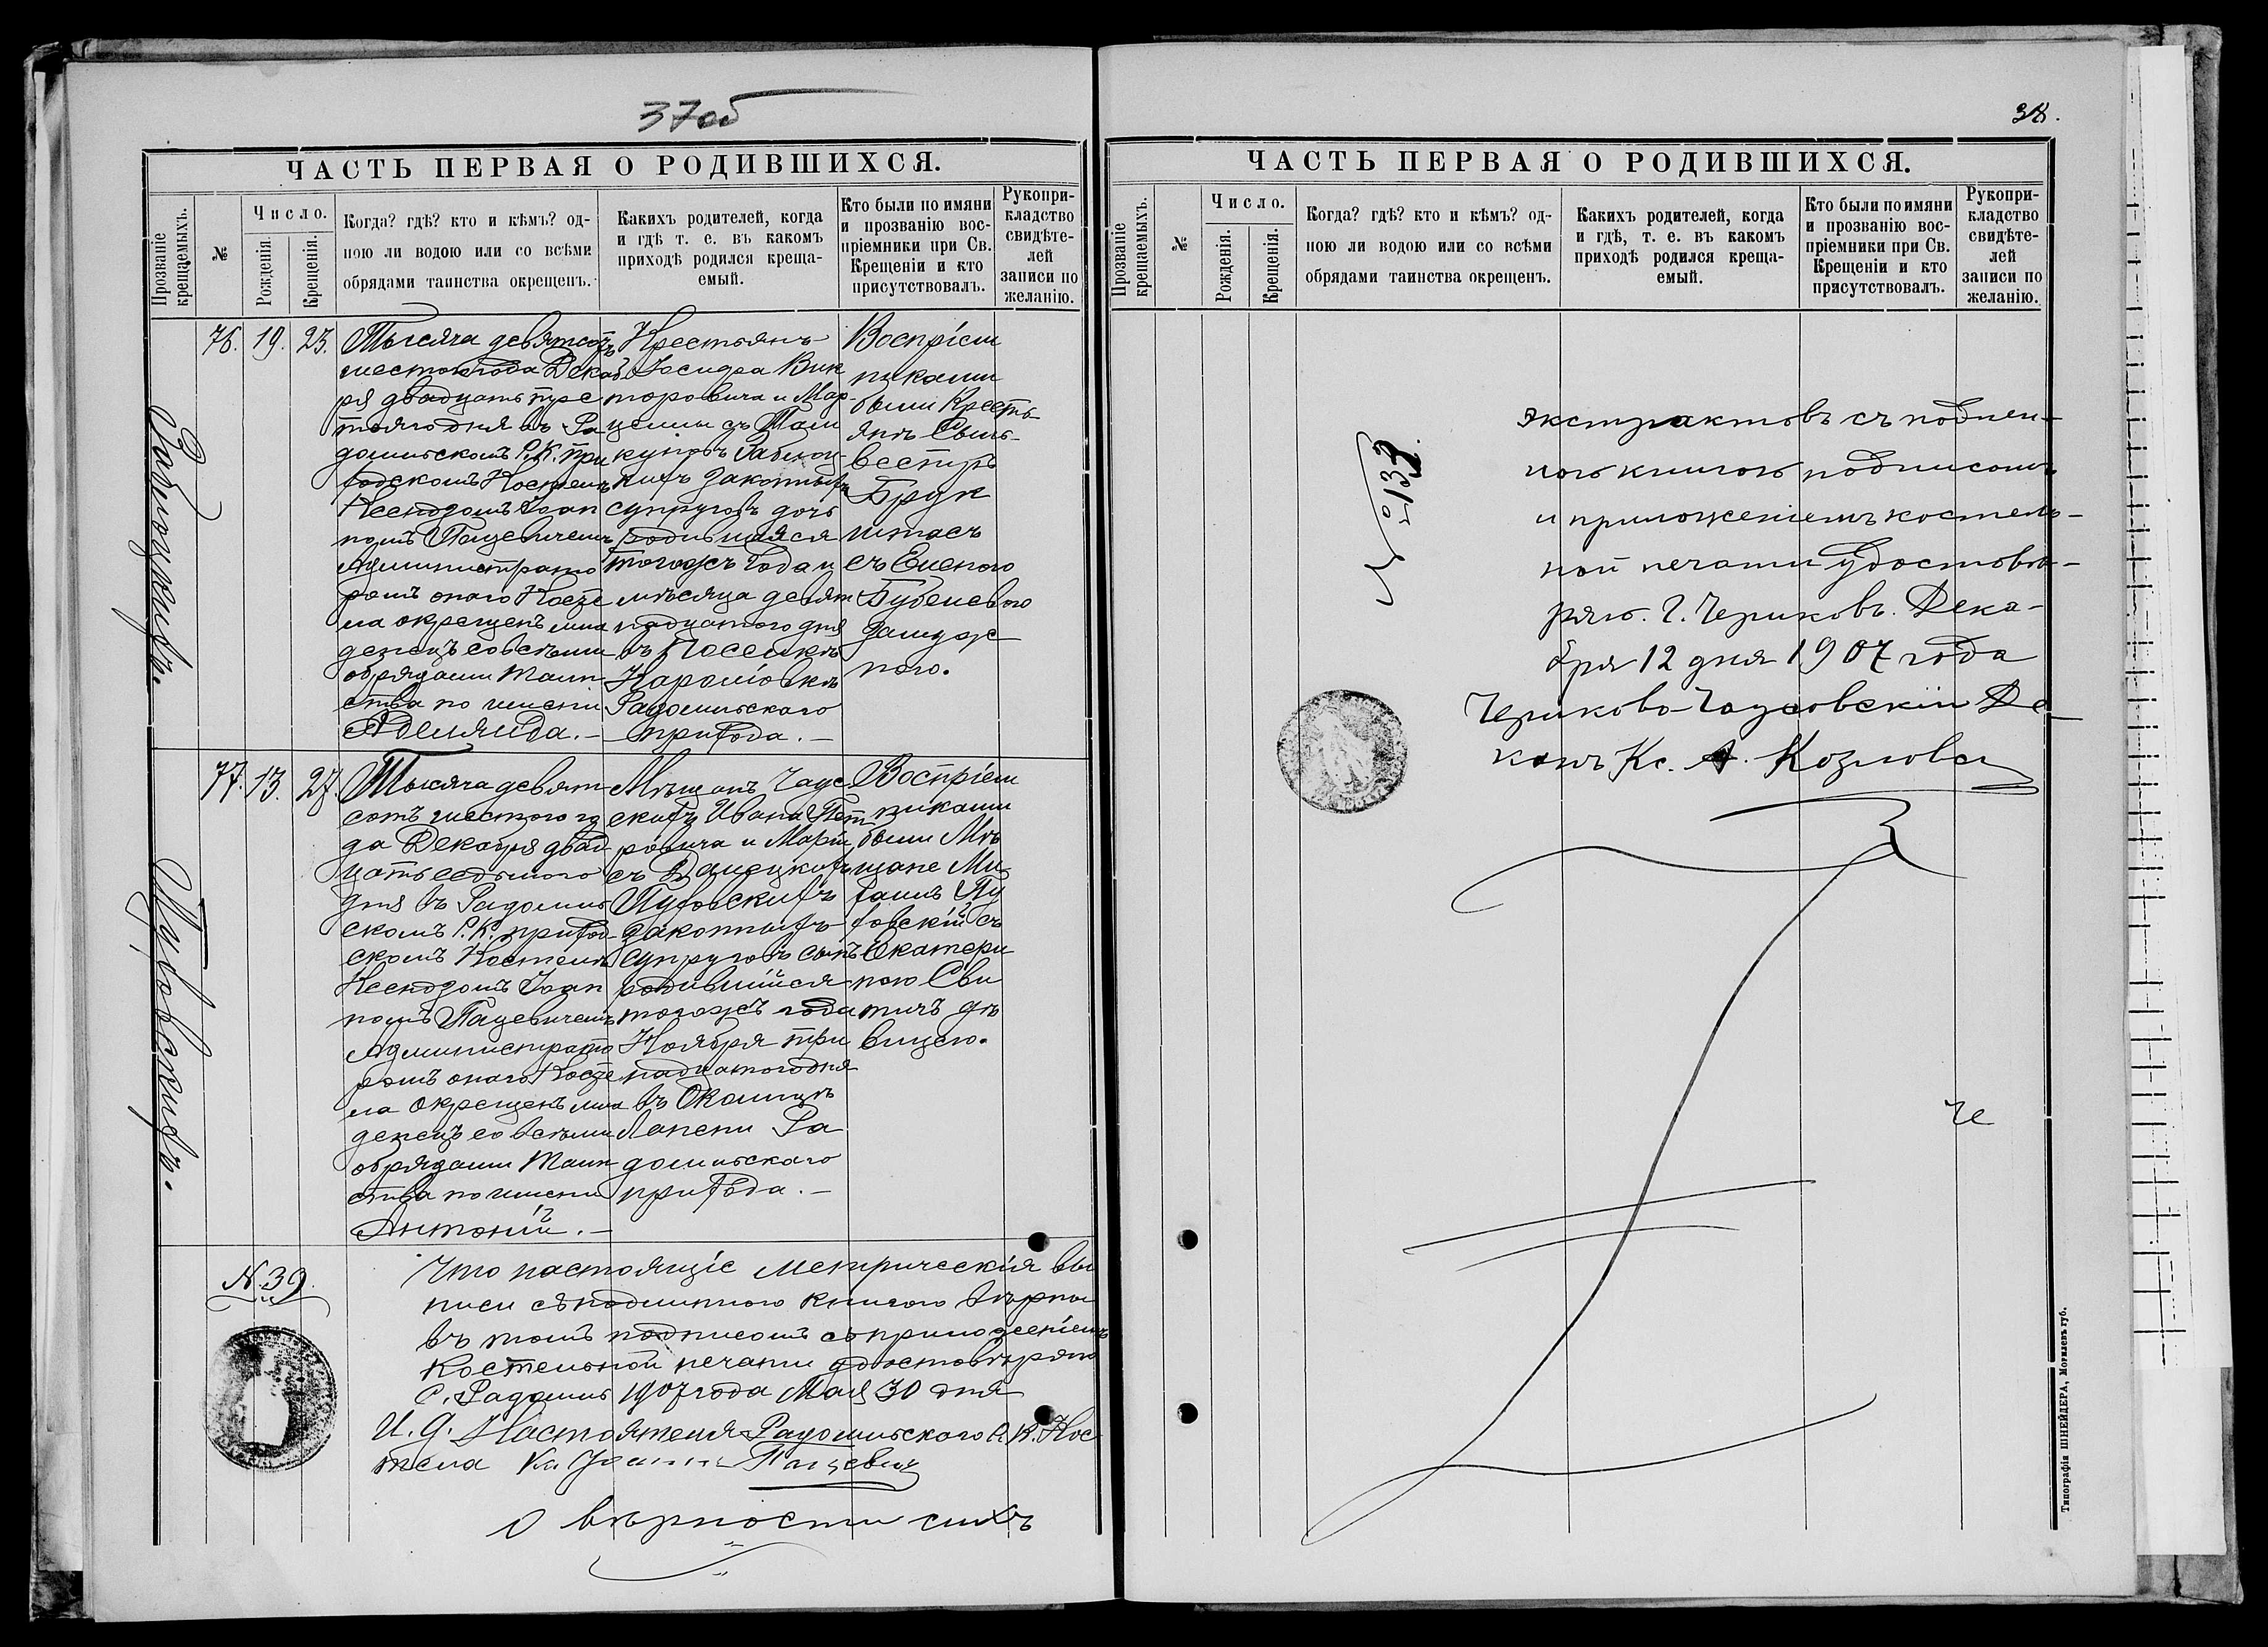 37об
ЧАСТЬ ПЕРВАЯ О РОДИВШИХСЯ.
Прозваніе крещаемыхъ.
№
Число.
Рожденія.
Крещенія.
Когда? гдѣ? кто и кѣмъ? од-
ною ли водою или со всѣми
обрядами таинства окрещенъ.
Какихъ родителей, когда
и гдѣ т. е. въ какомъ
приходѣ родился креща-
емый.
Кто были по имяни
и прозванію вос-
пріемники при Св.
Крещеніи и кто
присутствовалъ.
Рукопри-
кладство
свидѣте-
лей
записи по
желанію.
76.
19.
23.
Тысяча девятсотъ
шестого года Декаб
ря двадцать тре
тьяго дня въ Ра
домльскомъ Р.К. При
ходскомъ Костелѣ
Ксендзомъ Іоан
номъ Пацевичемъ
Администрато
ромъ онаго Косте
ла окрещенъ мла
денецъ со всѣми
обрядами Таин
ства по имени
Аделяида.—
Крестьянъ
Іосифа Вик
торовича и Мар
целины съ
Заблоц
кихъ законныхъ
супруговъ дочь
родившаяся
тогожъ Года и
мѣсяца девят
надцатого дня
въ Поселкѣ
Радомльскаго
прихода.—
Воспріем
никами
были Кресть
янъ Силь-
вестръ
съ Еленою
замуж
ного.
77.
13.
27.
Тысяча девят
сотъ шестого го
да Декабря двад
цать седьмого
дня въ Радомль
скомъ Р.К. приход-
скомъ Костелѣ
Ксендзомъ Іоан
номъ Пацевичемъ
Администрато
ромъ онаго Косте
ла окрещенъ мла
денецъ со всѣми
обрядами Таин
ства по имени
Антоній.—
Мѣщанъ Чаус
скихъ Ивана Пет
ровича и Маріи
съ Данецкихъ
законныхъ
супруговъ сынъ
родившійся
тогожъ года
Ноября три
надцатого дня
въ Околицѣ
Лапени Ра
домльскаго
прихода.—
Воспріем
никами
были Мѣ
щане Ми
хаилъ
съ
Екатери
ною Сви
тичъ дѣ
вицею.
№ 39.
Что настоящіе метрическія вы
писи съ подлинною книгою вѣрны
въ томъ подписомъ съ приложеніемъ
Костельной печати удостовѣряю
С. Радомль 1907 года Мая 30 дня
И. д. Настоятеля Радомльского Р. К. Кос
тела Кс. Іоаннъ Пацевичъ
О вѣрности сихъ
38.
ЧАСТЬ ПЕРВАЯ О РОДИВШИХСЯ.
Прозваніе крещаемыхъ.
№
Число.
Рожденія.
Крещенія.
Когда? гдѣ? кто и кѣмъ? од-
ною ли водою или со всѣми
обрядами таинства окрещенъ.
Какихъ родителей, когда
и гдѣ, т. е. въ какомъ
приходѣ родился креща-
емый.
Кто были по имяни
и прозванію вос-
пріемники при Св.
Крещеніи и кто
присутствовалъ.
Рукопри-
кладство
свидѣте-
лей
записи по
желанію.
экстрактовъ съ подлин-
ною книгою подписомъ
и приложеніемъ костель-
ной печати удостовѣ-
ряю. Г. Чериковъ. Дека-
бря 12 дня 1907 года
Чериково-Чаусовскій Де-
канъ Кс. А. Козловс
Типографія ШНЕЙДЕРА, Могилевъ губ.